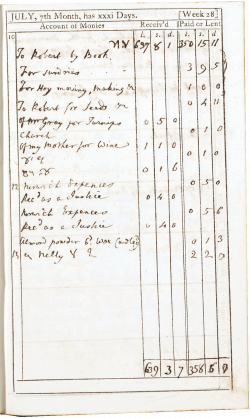 JULY, 7th Month, has xxxi Days. [Week 28]
Account of Monies Receiv'd Paid or Lent
l. s. d. l. s. d.
10 639 8 1 350 15 11
To Robert by Book
For sundries 3 9 5
For Hay mowing, making & 1 0 0
To Robert for Seeds & 0 4 11
Gray for Turnips 0 5 0
Church 0 1 0
Of my Mother for Wine 1 1 0
0 1 0
0 1 6
12 Norwich Expences 0 5 0
Rec'd as a Justice 0 4 0
Norwich Expences 0 5 6
Rec'd as a Justice 0 4 0
Almond powder 0 1 3
13 Nelly 2 2 0
639 3 7 358 6